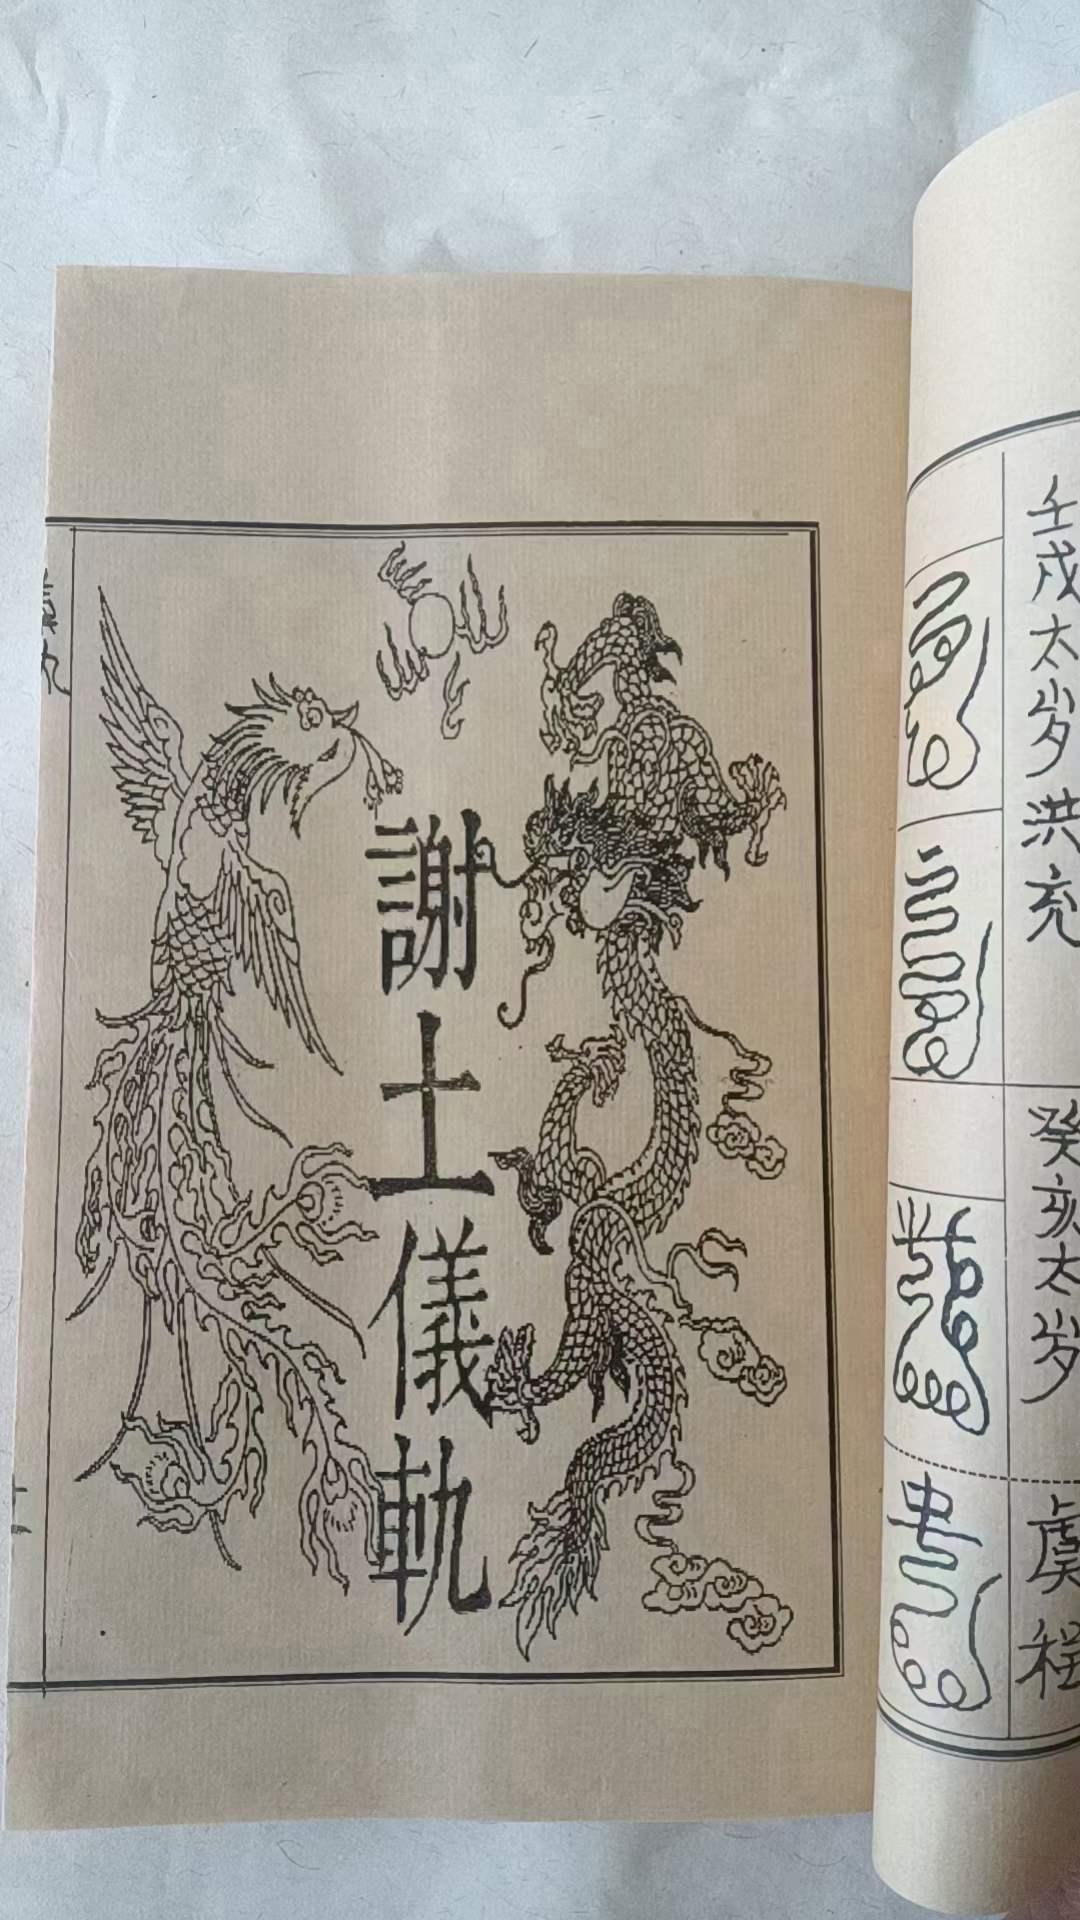 壬戌太岁洪充
癸亥太岁
虞程
謝土儀軌